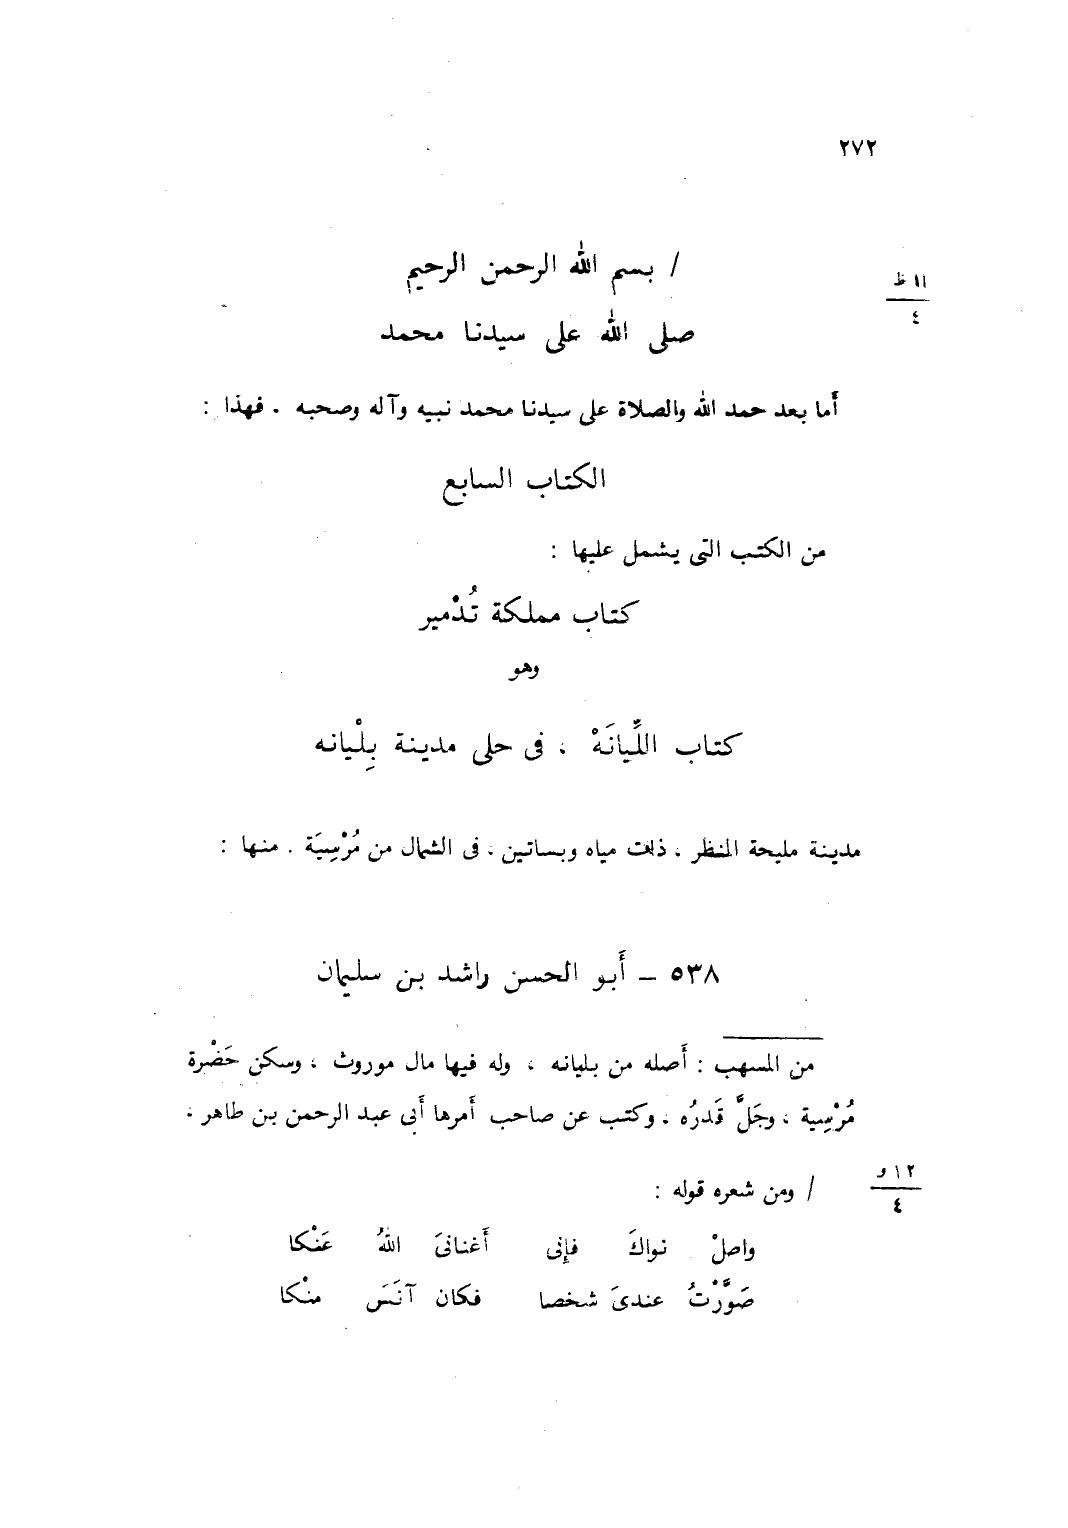 ٢٧٢
/ بسم الله الرحمن الرحيم
١١ ظ
٤
صلى الله على سيدنا محمد
أما بعد حمد الله والصلاة على سيدنا محمد نبيه وآله وصحبه . فهذا :
الكتاب السابع
من الكتب التى يشمل عليها :
كتاب مملكة تُدْمير
وهو
كتاب اللِّيانَهْ ، فى حلى مدينة بِلْيانه
مدينة مليحة المنظر ، ذات مياه وبساتين ، فى الشمال من مُرْسِيَة . منها :
٥٣٨ – أَبو الحسن راشد بن سليمان
من المسهب : أَصله من بليانه ، وله فيها مال موروث ، وسكن حَضْرة
مُرْسِية ، وجَلَّ قَدرُه . وكتب عن صاحب أَمرها أَبى عبد الرحمن بن طاهر ،
/ ومن شعره قوله :
١٢ و
٤
واصلْ نواكَ فإِنى أَغنانىَ اللهُ عَنْكا
صَوَّرْتُ عندىَ شخصا فكان آنَسَ منْكا